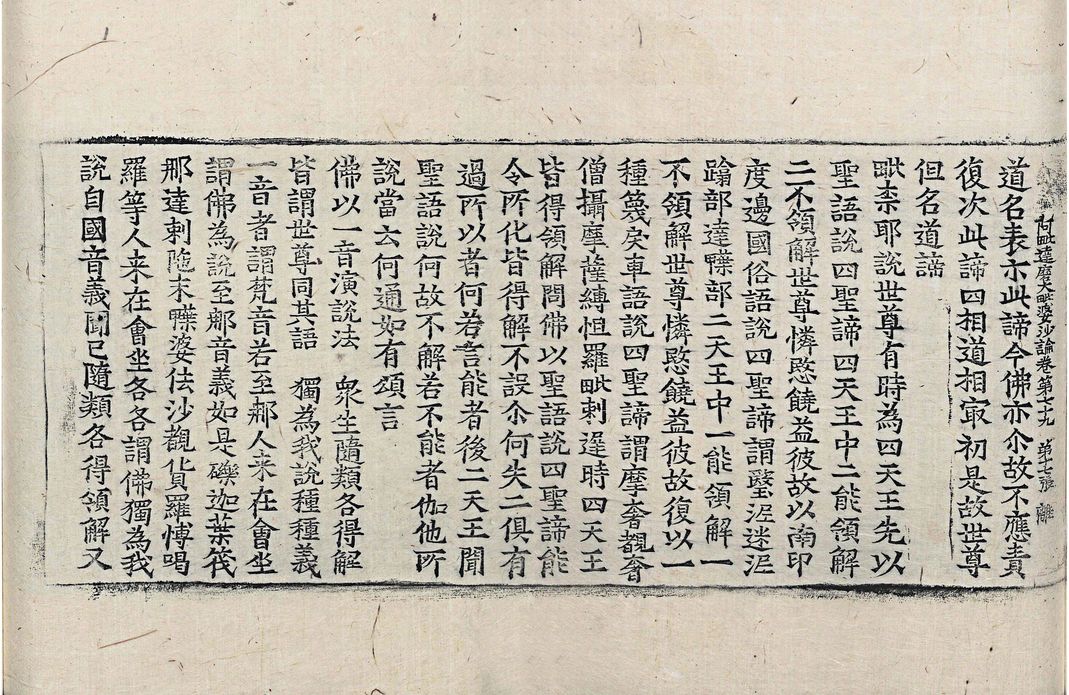 道名表示此諦今佛亦尒故不應責
阿毗達磨大毗婆沙論卷第七十九 第十七張 離
復次此諦四相道相㝡初是故世尊
但名道諦
毗柰耶說世尊有時為四天王先以
聖語說四聖諦四天王中二能領解
二不領解世尊憐愍饒益彼故以南印
度邊國俗語說四聖諦謂瑿泥迷泥
蹹部達鞢部二天王中一能領解一
不領解世尊憐愍饒益彼故復以一
種篾戾車語說四聖諦謂摩奢覩奢
僧攝摩薩縛怛羅毗剌遟時四天王
皆得領解問佛以聖語說四聖諦能
令所化皆得解不設尒何失二俱有
過所以者何若言能者後二天王聞
聖語說何故不解若不能者伽他所
說當云何通如有頌言
佛以一音演說法 衆生隨類各得解
皆謂世尊同其語 獨為我說種種義
一音者謂梵音若至那人来在會坐
謂佛為說至那音義如是礫迦葉筏
那達剌陁末鞢婆佉沙覩貨羅博喝
羅等人来在會坐各各謂佛獨為我
說自國音義聞已隨類各得領解又